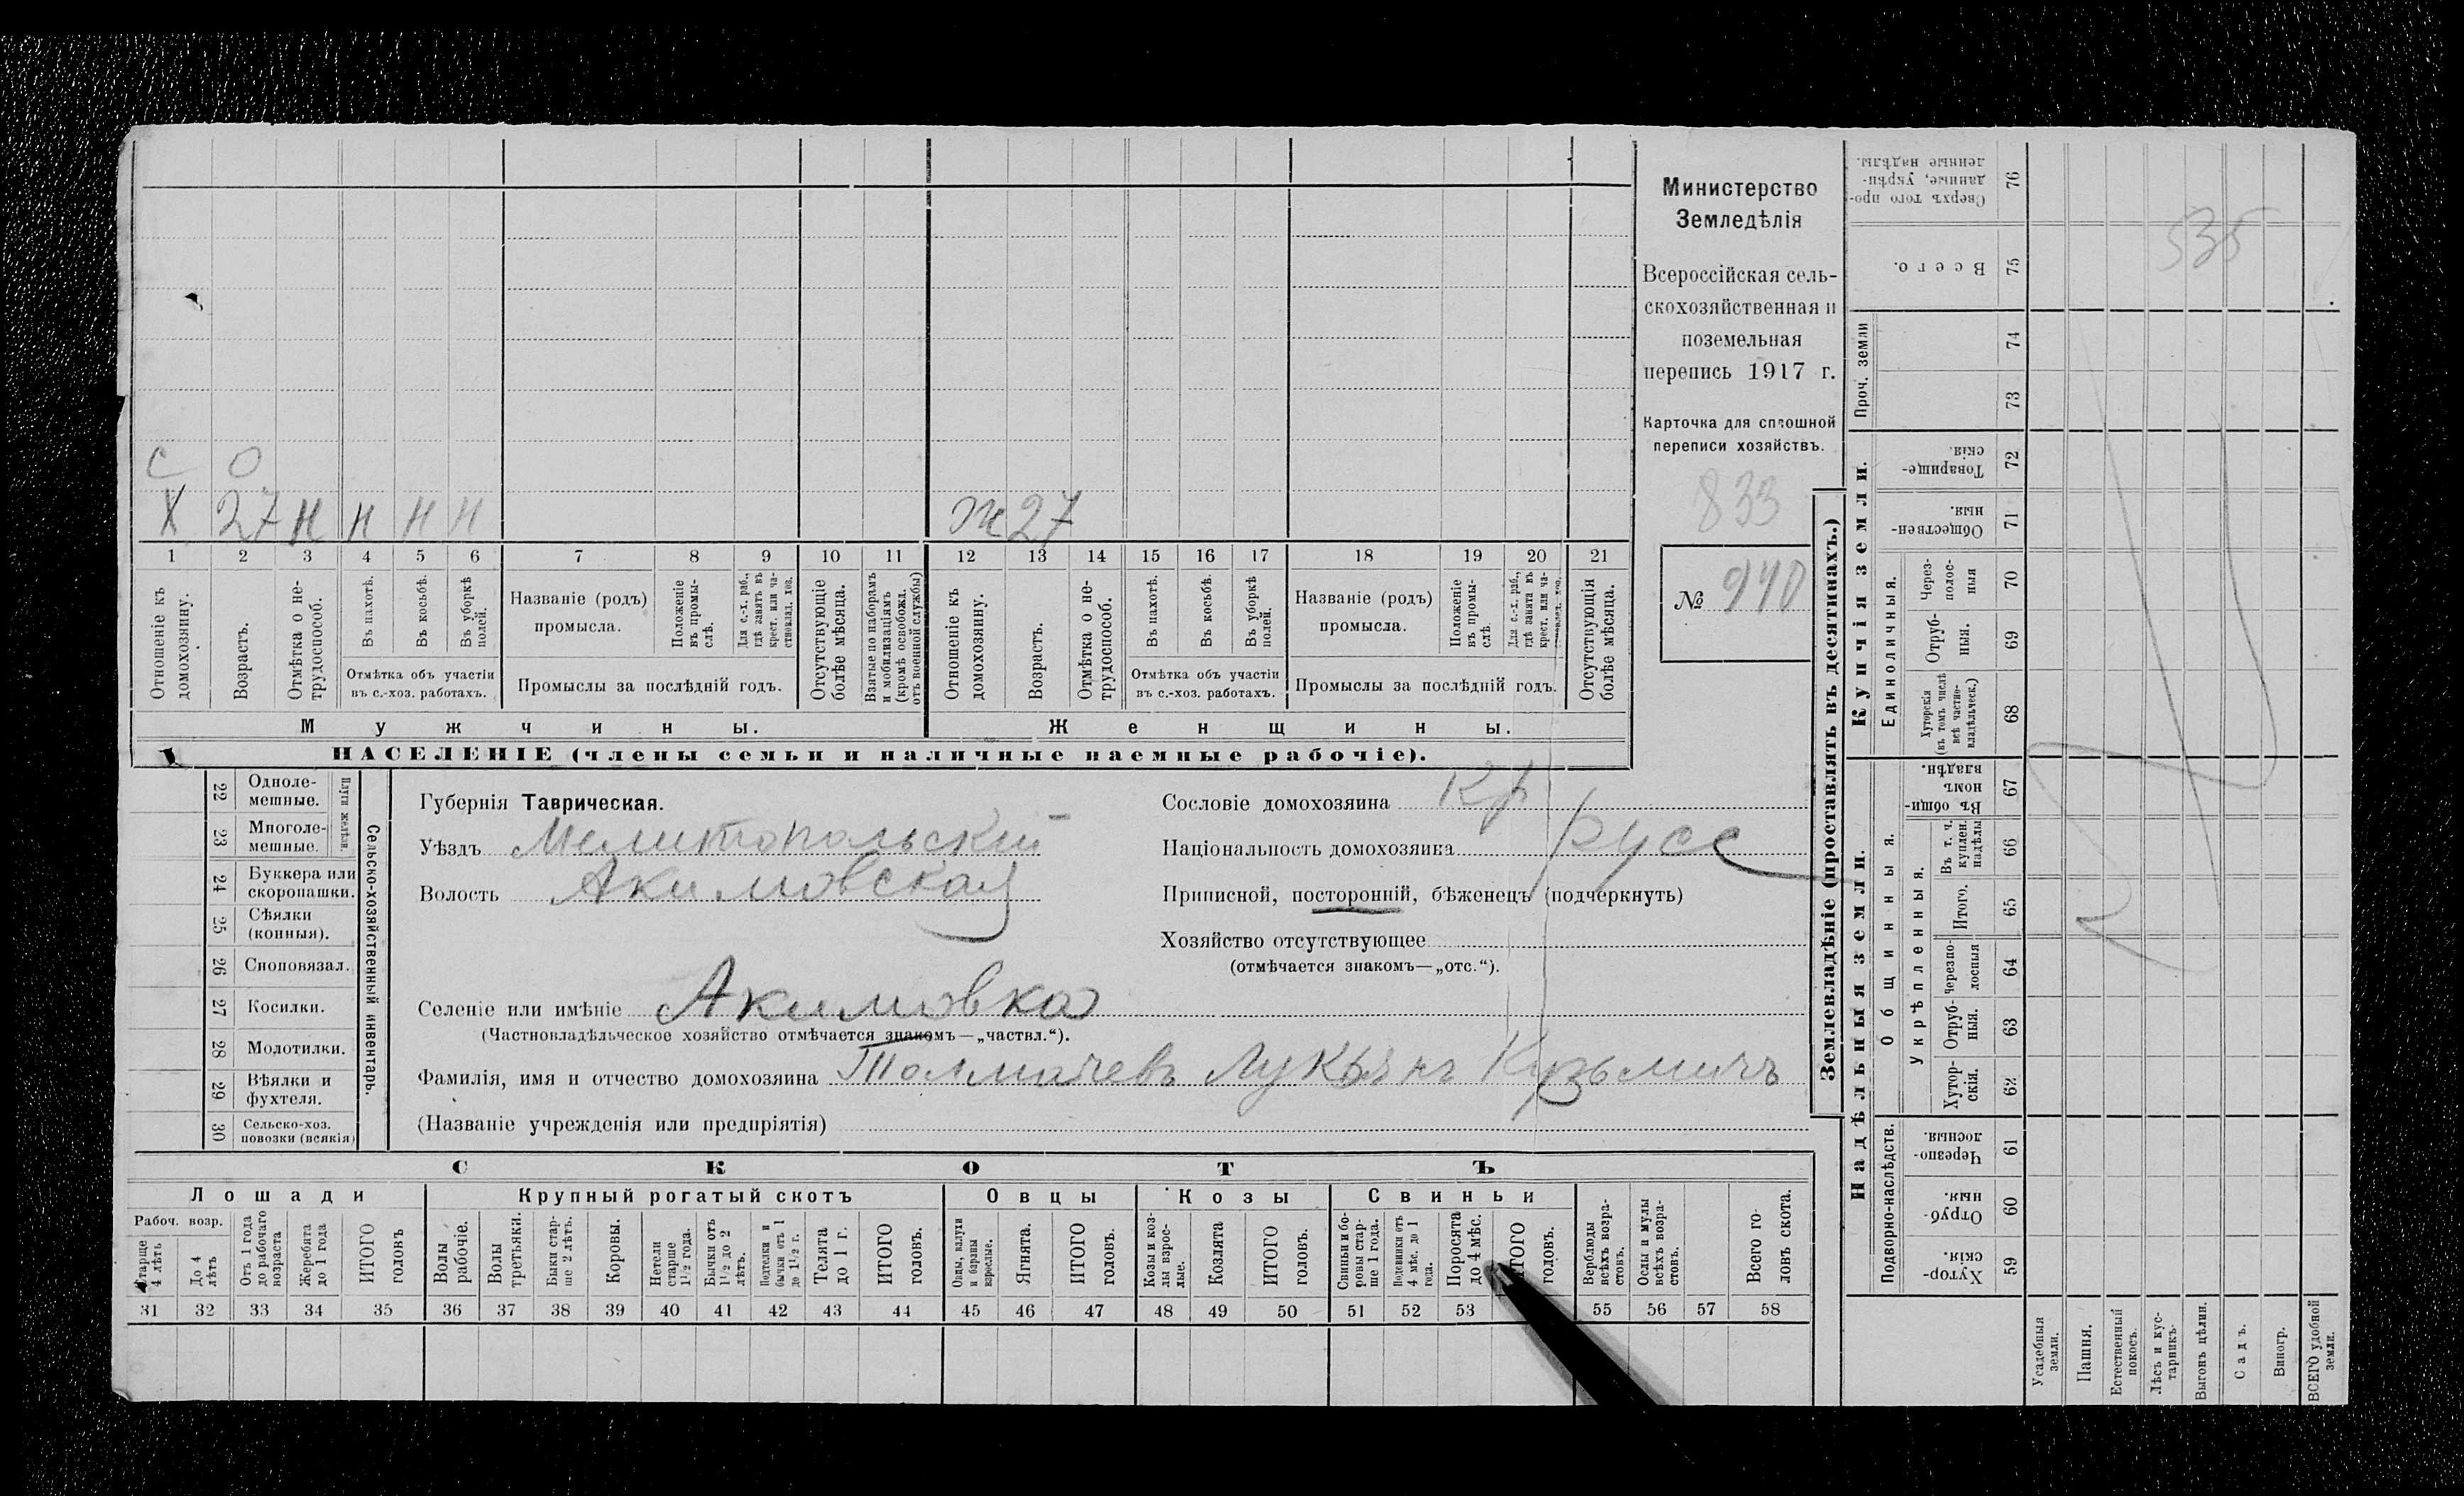 С О
Х 27 н н н н
Ж 27
1 2 3 4 5 6 7 8 9 10 11 12 13 14 15 16 17 18 19 20 21
Отношеніе къ домохозяину.
Возрастъ.
Отмѣтка о не-
трудоспособ.
Въ пахотѣ.
Въ косьбѣ.
Въ уборкѣ
полей.
Отмѣтка объ участіи
въ с.-хоз. работахъ.
Названіе (родъ)
промысла.
Положеніе
въ промы-
слѣ.
Для с.-х. раб.,
гдѣ занятъ въ
крест. или ча-
стновлад. хоз.
Промыслы за послѣдній годъ.
Отсутствующіе
болѣе мѣсяца.
Взятые по наборамъ
и мобилизаціямъ
(кромѣ освобожд.
отъ военной службы)
Отношеніе къ
домохозяину.
Возрастъ.
Отмѣтка о не-
трудоспособ.
Въ пахотѣ.
Въ косьбѣ.
Въ уборкѣ
полей.
Отмѣтка объ участіи
въ с.-хоз. работахъ.
Названіе (родъ)
промысла.
Положеніе
въ промы-
слѣ.
Для с.-х. раб.,
гдѣ занята въ
крест. или ча-
Промыслы за послѣдній годъ.
Отсутствующія
болѣе мѣсяца.
Мужчины.
Женщины.
НАСЕЛЕНІЕ (члены семьи и наличные наемные рабочіе).
Министерство
Земледѣлія
Всероссійская сель-
скохозяйственная и
поземельная
перепись 1917 г.
Карточка для сплошной
переписи хозяйствъ.
833
№ 940
22 Одноле-
мешные.
23 Многоле-
мешные.
Плуги желѣзн.
24 Буккера или
скоропашки.
25 Сѣялки
(конныя).
26 Сноповязал.
27 Косилки.
28 Молотилки.
29 Вѣялки и
фухтеля.
30 Сельско-хоз.
повозки (всякія)
Сельско-хозяйственный инвентарь.
Губернія Таврическая.
Уѣздъ Мелитопольскій
Волость Акимовская
Сословіе домохозяина Кр
Національность домохозяина русс
Приписной, посторонній, бѣженецъ (подчеркнуть)
Хозяйство отсутствующее
(отмѣчается знакомъ—„отс.“).
Селеніе или имѣніе Акимовка
(Частновладѣльческое хозяйство отмѣчается знакомъ—„частвл.“).
Фамилія, имя и отчество домохозяина Толмачевъ Лукьянъ Кузьмичъ
(Названіе учрежденія или предпріятія)
СКОТЪ
Лошади
Крупный рогатый скотъ
Овцы
Козы
Свиньи
Рабоч. возр.
Старше
4 лѣтъ
До 4
лѣтъ
Отъ 1 года
до рабочаго
возраста
Жеребята
до 1 года
ИТОГО
головъ
Волы
рабочіе.
Волы
третьяки.
Быки стар-
ше 2 лѣтъ.
Коровы.
Нетели
старше
1½ года.
Бычки отъ
1½ до 2
лѣтъ.
Подтелки и
бычки отъ 1
до 1½ г.
Телята
до 1 г.
ИТОГО
головъ.
Овцы, валухи
и бараны
взрослые.
Ягнята.
ИТОГО
головъ.
Козы и коз-
лы взрос-
лые.
Козлята
ИТОГО
головъ.
Свиньи и бо-
ровы стар-
ше 1 года.
Подсвинки отъ
4 мѣс. до 1
года.
Поросята
до 4 мѣс.
ИТОГО
головъ.
Верблюды
всѣхъ возра-
стовъ.
Ослы и мулы
всѣхъ возра-
стовъ.
Всего го-
ловъ скота.
31 32 33 34 35 36 37 38 39 40 41 42 43 44 45 46 47 48 49 50 51 52 53 55 56 57 58
Землевладѣніе (проставлять въ десятинахъ.)
Сверхъ того про-
данные, укрѣп-
ленные надѣлы.
76
Всего.
75
535
Проч. земли
74
73
Купчія земли.
Товарище-
скія.
72
Обществен-
ныя.
71
Единоличныя.
Через-
полос-
ныя
70
Отруб-
ныя.
69
Хуторскія
(въ томъ числѣ
всѣ частно-
владѣльческ.)
68
Надѣльныя земли.
Общинныя.
Въ общи-
номъ
владѣн.
67
Укрѣпленныя.
Въ т. ч.
куплен.
надѣлы
66
Итого.
65
Черезпо-
лосныя
64
Отруб-
ныя.
63
Хутор-
скія.
62
Подворно-наслѣдств.
Черезпо-
лосныя.
61
Отруб-
ныя.
60
Хутор-
скія.
59
Усадебныя
земли.
Пашня.
Естественный
покосъ.
Лѣсъ и кус-
тарникъ.
Выгонъ цѣлин.
Садъ.
Виногр.
ВСЕГО удобной
земли.